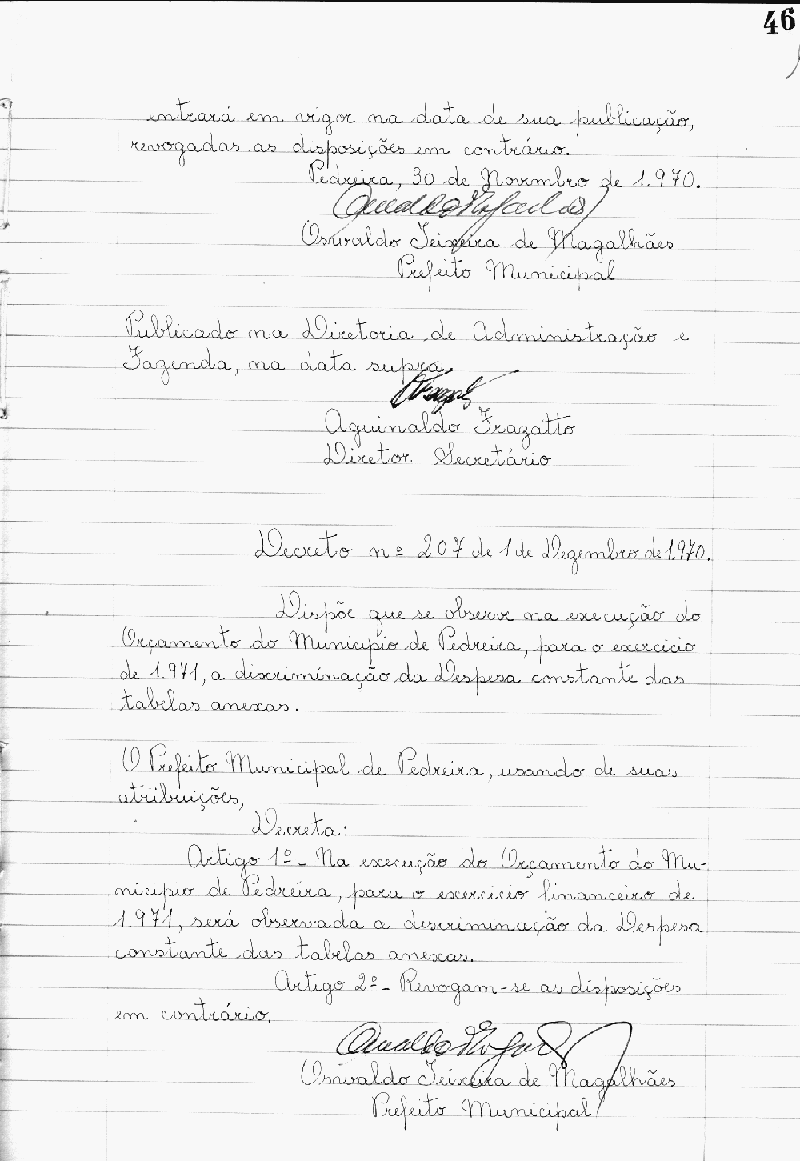 46
entrará em vigor na data de sua publicação,
revogadas as disposições em contrário.
Pedreira, 30 de Novembro de 1.970.
Oswaldo Teixeira de Magalhães
Prefeito Municipal
Publicado na Diretoria de Administração e
Fazenda, na data supra.
Aguinaldo Frazatto
Diretor Secretário
Decreto nº 207 de 1 de Dezembro de 1.970.
Dispõe que se observe na execução do
Orçamento do Município de Pedreira, para o exercício
de 1.971, a discriminação da Despesa constante das
tabelas anexas.
O Prefeito Municipal de Pedreira, usando de suas
atribuições,
Decreta:
Artigo 1º - Na execução do Orçamento do Mu-
nicípio de Pedreira, para o exercício financeiro de
1.971, será observada a discriminação da Despesa
constante das tabelas anexas.
Artigo 2º - Revogam-se as disposições
em contrário.
Oswaldo Teixeira de Magalhães
Prefeito Municipal